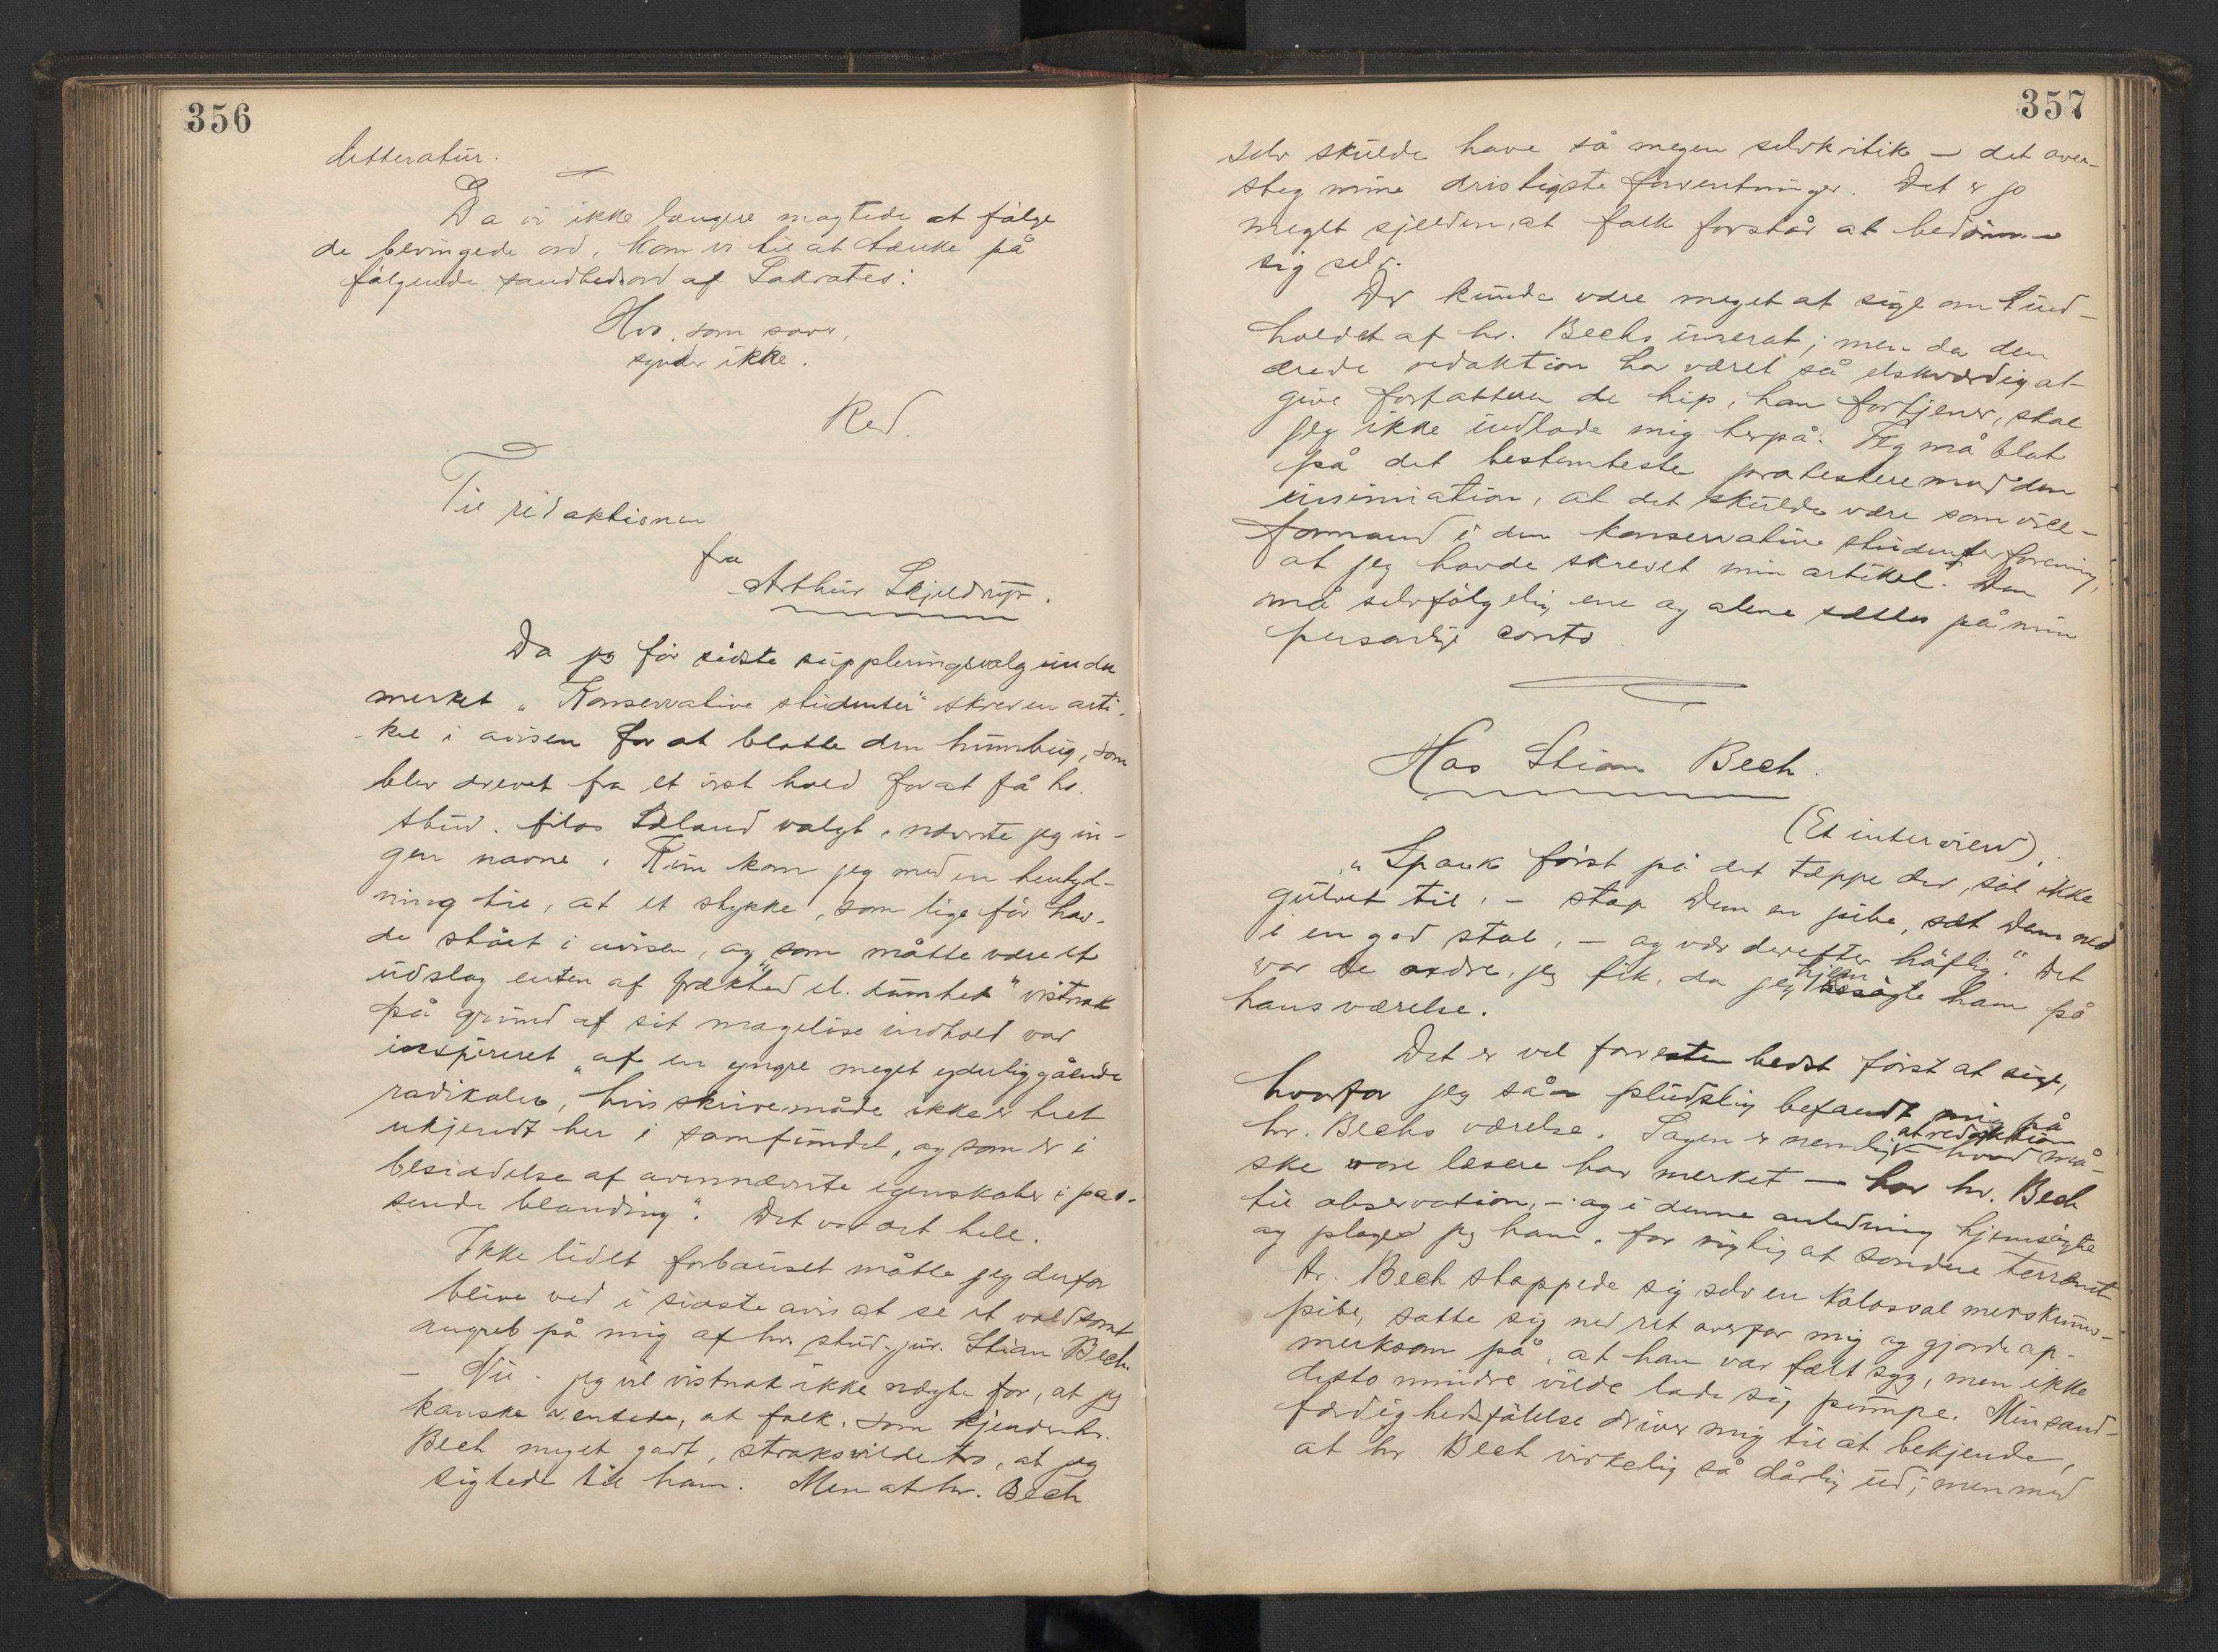 356
litteratur.
Da vi ikke længere magtede at følge
de bevingede ord, kom vi til at tænke på
følgende sandhedsord af Sokrates:
Hvo, som sover,
synder ikke.
Red.
Til redaktionen
fra
Arthur Skjeldrup.
Da jeg før sidste suppleringsvalg under
merket "Konservative studenter" skrev en arti-
kel i avisen for at blotte den humbug, som
blev drevet fra et vist hold for at få hr.
stud. filos Æland valgt, nævnte jeg in-
gen navne. Kun kom jeg med en hentyd-
ning til, at et stykke, som lige før hav-
de stået i avisen, og "som måtte være et
udslag enten af frækhed el. dumhed" vistnok
på grund af sit mageløse indhold var
inspireret "af en yngre meget yderliggående
radikaler, hvis skrivemåde ikke er helt
ukjendt her i samfundet, og som er i
besiddelse af ovennævnte egenskaber i pas-
sende blanding". Det var det hele.
Ikke lidet forbauset måtte jeg derfor
blive ved i sidste avis at se et voldsomt
angreb på mig af hr. stud. jur. Stian Bech.
— Nu - jeg vil vistnok ikke nægte for, at jeg
kanske ventede, at folk, som kjender hr.
Bech meget godt, straks vilde tro, at jeg
sigtede til ham. Men at hr. Bech
357
selv skulde have så megen selvkritik — det over-
steg mine dristigste forventninger. Det er jo
meget sjelden, at folk forstår at bedømme
sig selv.
Der kunde være meget at sige om ind-
holdet af hr. Bechs inserat; men da den
ærede redaktion har været så elskværdig at
give forfatteren de hip, han fortjener, skal
jeg ikke indlade mig herpå. Jeg må blot
på det bestemteste protestere mod den
insinuation, at det skulde være som vice-
formand i den konservative studenterforening,
at jeg havde skrevet min artikel. Den
må selvfølgelig ene og alene sættes på min
personlige conto.
Hos Stian Bech.
(Et interview).
"Spark først på det tæppe der, søl ikke
gulvet til, - stop Dem en pibe, sæt Dem ned
i en god stol, - og vær derefter høflig". Det
var de ordre, jeg fik, da jeg hjemsøgte ham på
hans værelse.
Det er vel forresten bedst først at sige,
hvorfor jeg så pludslig befandt mig på
hr. Bechs værelse. Sagen er nemlig, at redaktionen - hvad må-
ske vore læsere har merket — har hr. Bech
til observation, - og i denne anledning hjemsøgte
og plaged jeg ham, for rigtig at sondere terrænet
Hr. Bech stoppede sig selv en kolossal merskums-
pibe, satte sig ned ret overfor mig og gjorde op-
merksom på, at han var fælt syg, men ikke
desto mindre vilde lade sig pumpe. Min sand-
færdighedsfølelse driver mig til at bekjende,
at hr. Bech virkelig så dårlig ud; men med